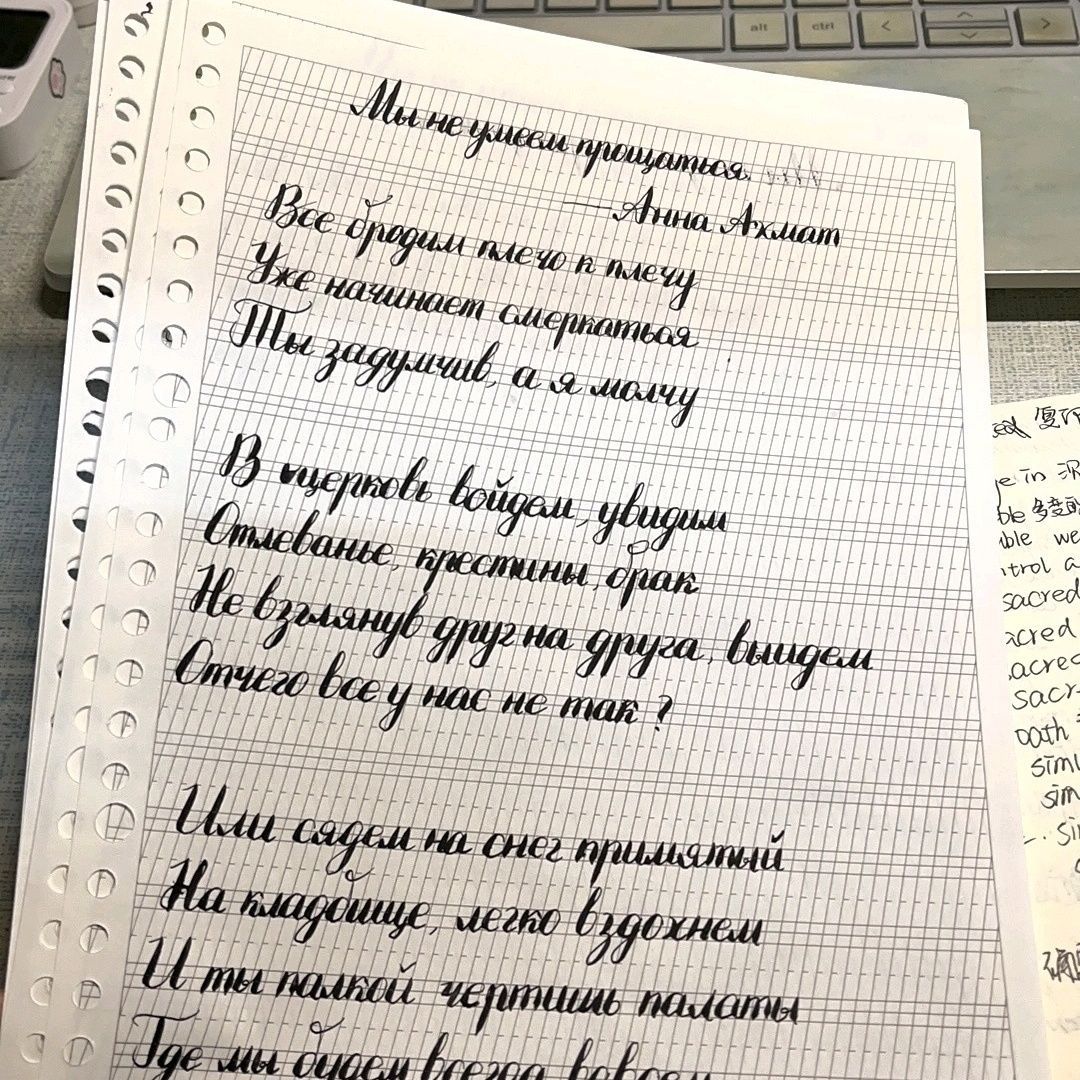 Мы не умеем прощаться.
— Анна Ахмат
Все бродим плечо к плечу
Уже начинает смеркаться
Ты задумчив, а я молчу
В церковь войдем, увидим
Отпеванье, крестины, брак
Не взглянув друг на друга, выйдем
Отчего все у нас не так?
Или сядем на снег примятый
На кладбище, легко вздохнем
И ты палкой чертишь палаты
Где мы будем всегда вдвоем
alt
ctrl
复印
in
ble 多变的
able we
trol a
sacred
acred
acred
sacr
oath
simu
sim